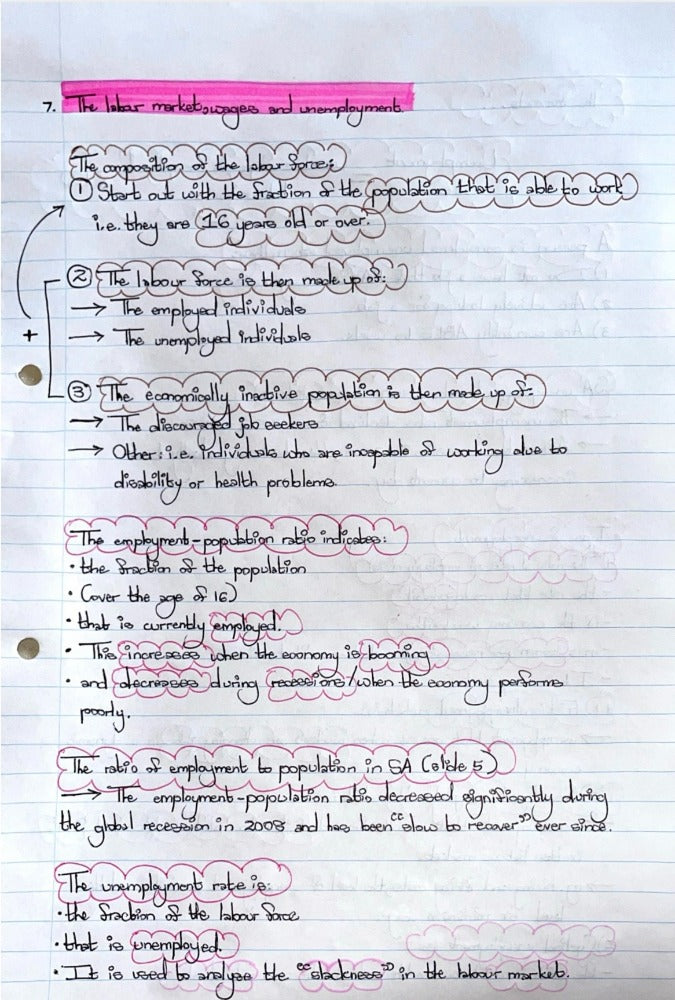 7. The labour market, wages and unemployment.
The composition of the labour force:
① Start out with the fraction of the population that is able to work
i.e. they are 16 years old or over.
② The labour force is then made up of:
→ The employed individuals
+ → The unemployed individuals
③ The economically inactive population is then made up of:
→ The discouraged job seekers
→ Other: i.e. individuals who are incapable of working due to
disability or health problems.
The employment-population ratio indicates:
• the fraction of the population
• (over the age of 16)
• that is currently employed.
• This increases when the economy is booming
• and decreases during recessions/when the economy performs
poorly.
The ratio of employment to population in SA (slide 5)
→ The employment-population ratio decreased significantly during
the global recession in 2008 and has been "slow to recover" ever since.
The unemployment rate is:
• the fraction of the labour force
• that is unemployed.
• It is used to analyse the "slackness" in the labour market.